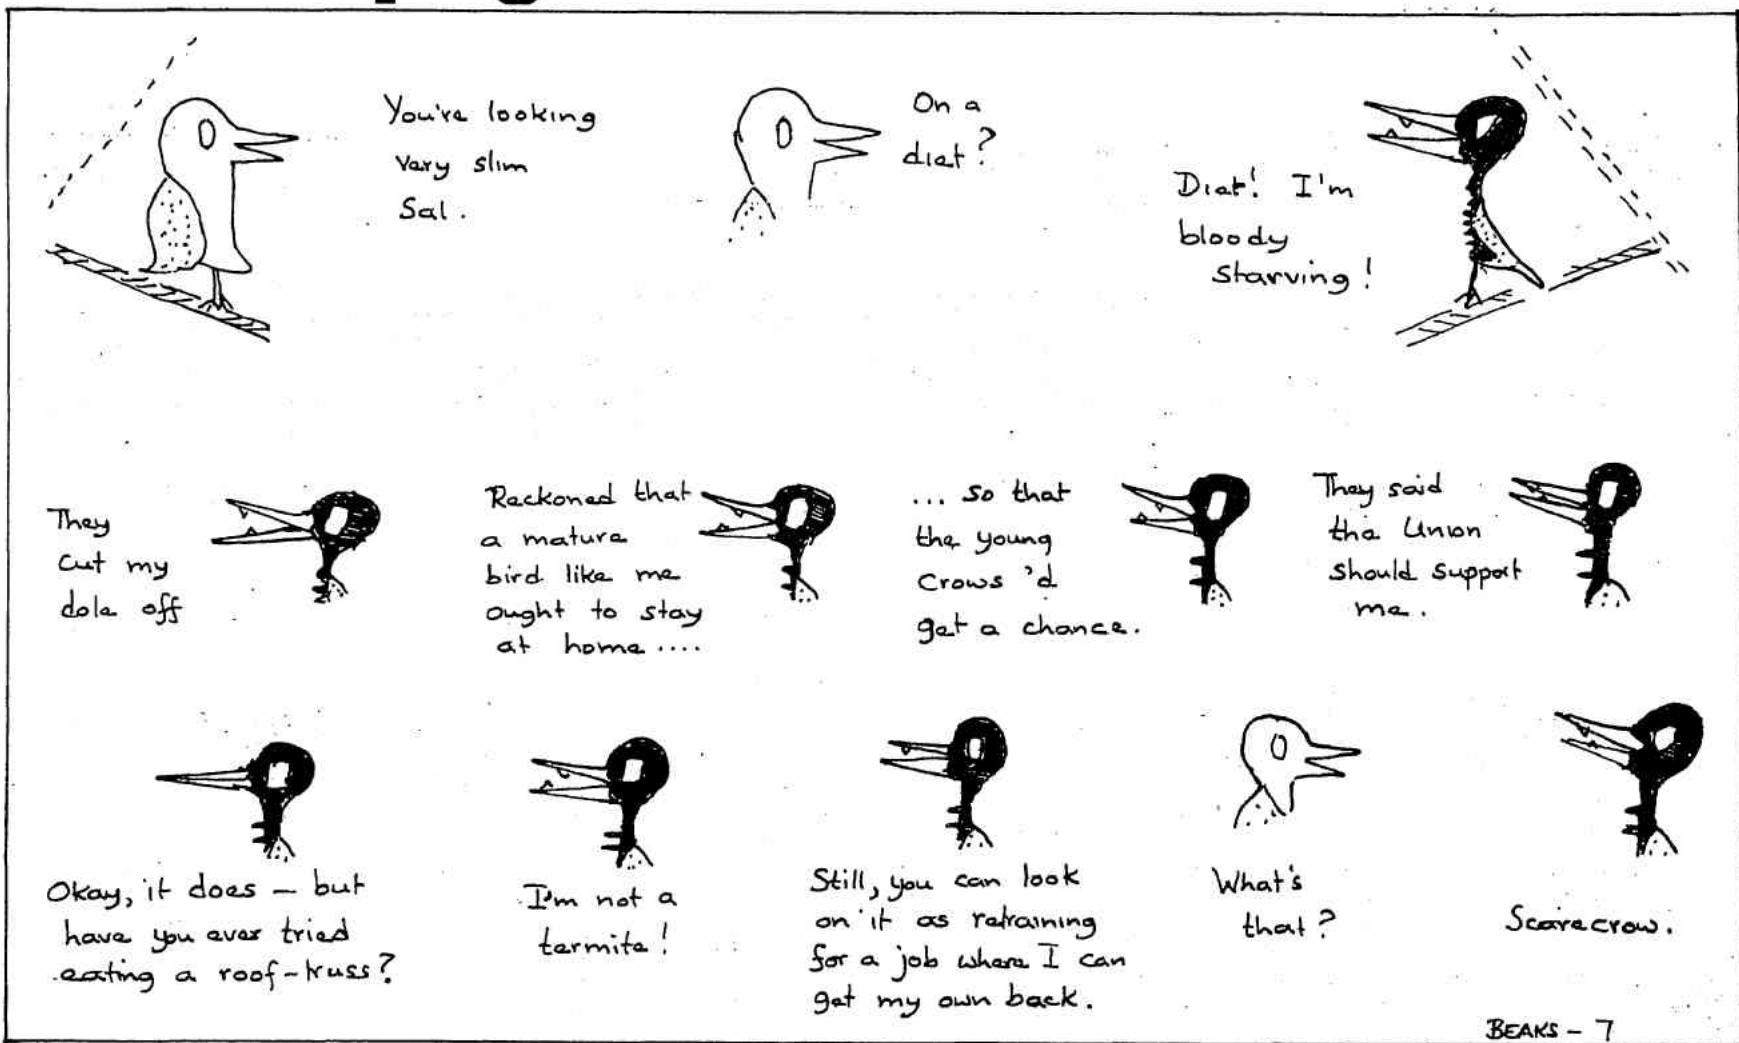 You're looking
very slim
Sal.
On a
diet?
Diet! I'm
bloody
starving!
They
cut my
dole off
Reckoned that
a mature
bird like me
ought to stay
at home ....
... so that
the young
crows 'd
get a chance.
They said
the Union
should support
me.
Okay, it does – but
have you ever tried
eating a roof-truss?
I'm not a
termite!
Still, you can look
on it as retraining
for a job where I can
get my own back.
What's
that?
Scarecrow.
BEAKS – 7